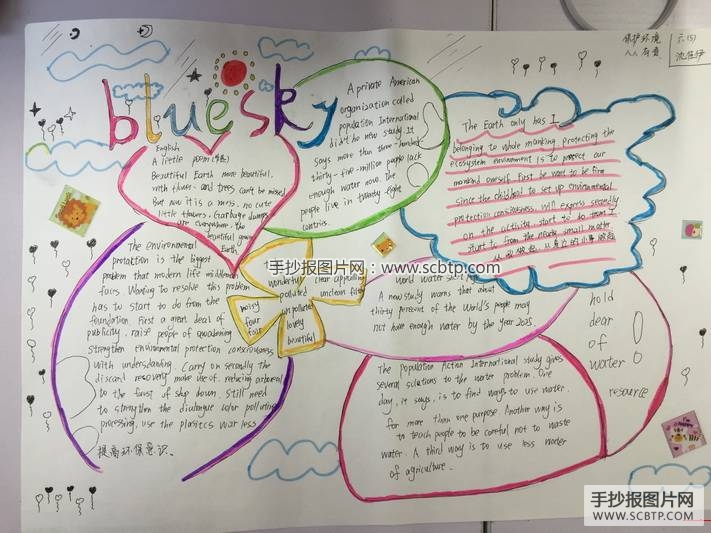 blue sky
保护环境
人人有责
六(5)
English
A little poem
Beautiful Earth more beautiful,
with flower and trees can't be missed
But now it is a mess. no cute
little flowers. Garbage dumps
are everywhere. the
beautiful green
Earth.
A private American
organization called
population International
did the new study. It
says more than three-hundred
thirty-five-million people lack
enough water now. The
people live in twenty eight
contries.
The Earth only has 1,
belonging to whole manking protecting the
ecosystem environment is to protect our
mankind oneself. First be want to be firm
since the childhood to set up environmental
protection consciousness, will express secondly
on the activity. start to do from I
start to from the nearly small matter.
The environmental
protection is the biggest
problem that modern life
faces. Wanting to resolve this problem
has to start to do from the
foundation. First a great deal of
publicity. raise
strengthen environmental protection consciousness
with understanding. Carry on secondly the
discard recovery make use of. reducing
to the
to strengthen the
processing, use the plastics
提高环保意识。
wonderful
clear appealing
polluted
unclean filthy
noisy
four
fair
unpolluted
lovely
beautiful
World water
A new study warns that about
thirty percent of the World's people may
not have enough water by the year 2025.
hold
dear
of
water
resource
The population Action International study gives
several solutions to the water problem. One
day, it says, is to find ways to use water
for more than one purpose. Another way is
to teach people to be careful not to waste
water. A third way is to use less water
of agriculture.
手抄报图片网：www.scbtp.com
手抄报图片网
WWW.SCBTP.COM